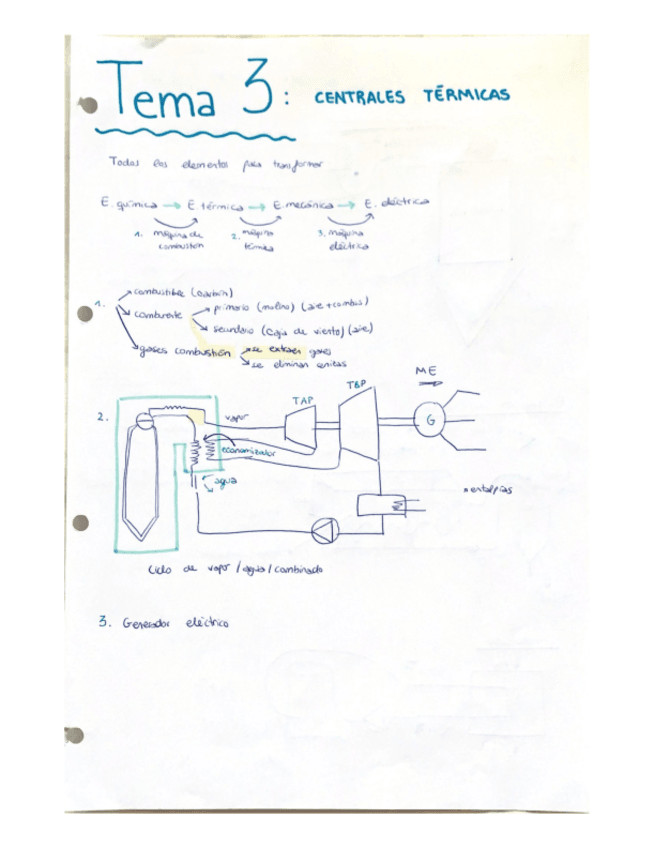 Tema 3: CENTRALES TÉRMICAS
Todas los elementos para transformar
E. química → E térmica → E. mecánica → E. eléctrica
1. máquina de combustión 2. máquina térmica 3. máquina eléctrica
1.
combustible (carbón)
comburente
primario (molino) (aire + combus)
secundario (caja de viento) (aire)
gases combustión
se extraen gases
se eliminan cenizas
ME
TBP
TAP
2.
vapor
G
economizador
agua
entalpías
Ciclo de vapor / agua / combinado
3. Generador eléctrico